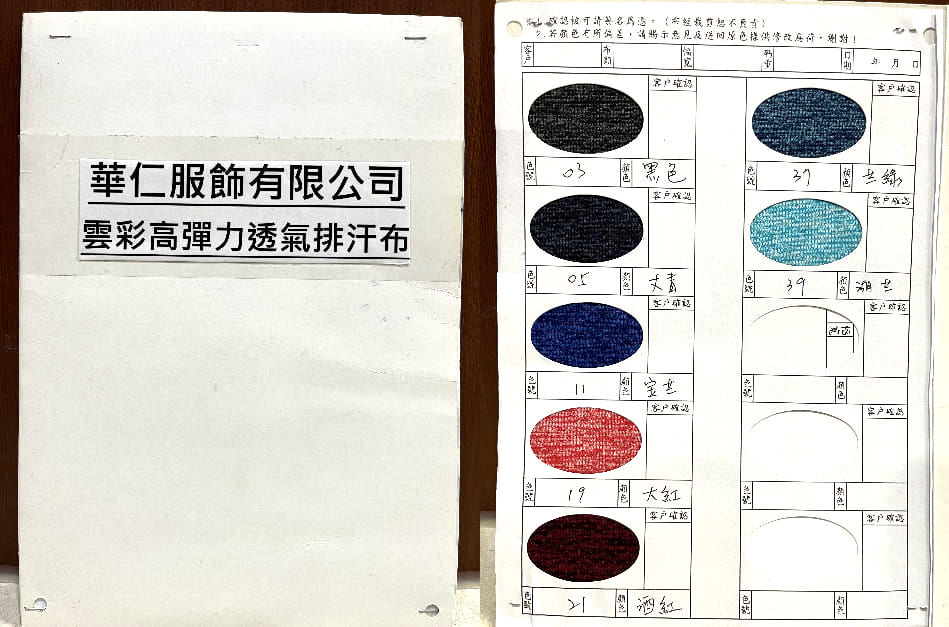 華仁服飾有限公司
雲彩高彈力透氣排汗布
※1.確認後可請簽名為憑。(布經裁剪恕不負責)
2.若顏色有所偏差,請賜示意見及送回原色樣供修改為荷,謝謝!
客戶 布類 幅寬 碼重 日期 年 月 日
客戶確認
色號 03 顏色 黑色
客戶確認
色號 05 顏色 丈青
客戶確認
色號 11 顏色 宝兰
客戶確認
色號 19 顏色 大紅
客戶確認
色號 21 顏色 酒紅
客戶確認
色號 37 顏色 兰綠
客戶確認
色號 39 顏色 湖兰
客戶確認
色號 顏色
客戶確認
色號 顏色
客戶確認
色號 顏色